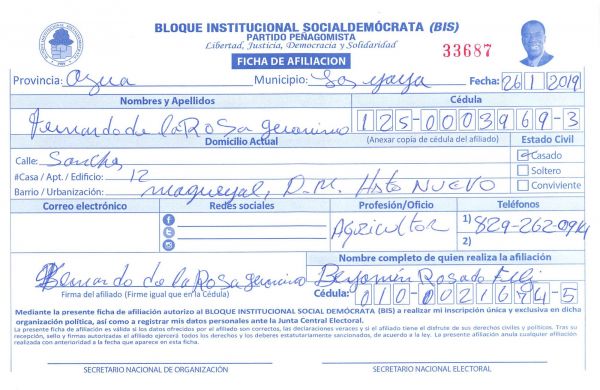 BLOQUE INSTITUCIONAL SOCIALDEMÓCRATA (BIS)
PARTIDO PEÑAGOMISTA
Libertad, Justicia, Democracia y Solidaridad
FICHA DE AFILIACION
33687
Provincia: Azua Municipio: Las yaya Fecha: 26 1 2019
Nombres y Apellidos Cédula
Fernando de la Rosa geronimo 125-0003969-3
Domicilio Actual (Anexar copia de cédula del afiliado) Estado Civil
Calle: Sanchez Casado
#Casa / Apt. / Edificio: 12 Soltero
Barrio / Urbanización: magueyal, D.M. Hato NUEVO Conviviente
Correo electrónico Redes sociales Profesión/Oficio Teléfonos
Agricultor 1) 829-262-0914
2)
Nombre completo de quien realiza la afiliación
Fernando de la Rosa geronimo Benjamin Rosado
Firma del afiliado (Firme igual que en la Cédula) Cédula: 010-0021694-5
Mediante la presente ficha de afiliación autorizo al BLOQUE INSTITUCIONAL SOCIAL DEMÓCRATA (BIS) a realizar mi inscripción única y exclusiva en dicha
organización política, así como a registrar mis datos personales ante la Junta Central Electoral.
La presente ficha de afiliación es válida si los datos ofrecidos por el afiliado son correctos, las declaraciones veraces y si el afiliado tiene el disfrute de sus derechos civiles y políticos. Tras su
recepción, sello y firmas autorizadas el afiliado ejercerá todos los derechos y los deberes estatutariamente sancionados, de acuerdo a la ley. La presente afiliación anula cualquier afiliación
realizada con anterioridad a la fecha que aparece en esta ficha.
SECRETARIO NACIONAL DE ORGANIZACIÓN SECRETARIO NACIONAL ELECTORAL